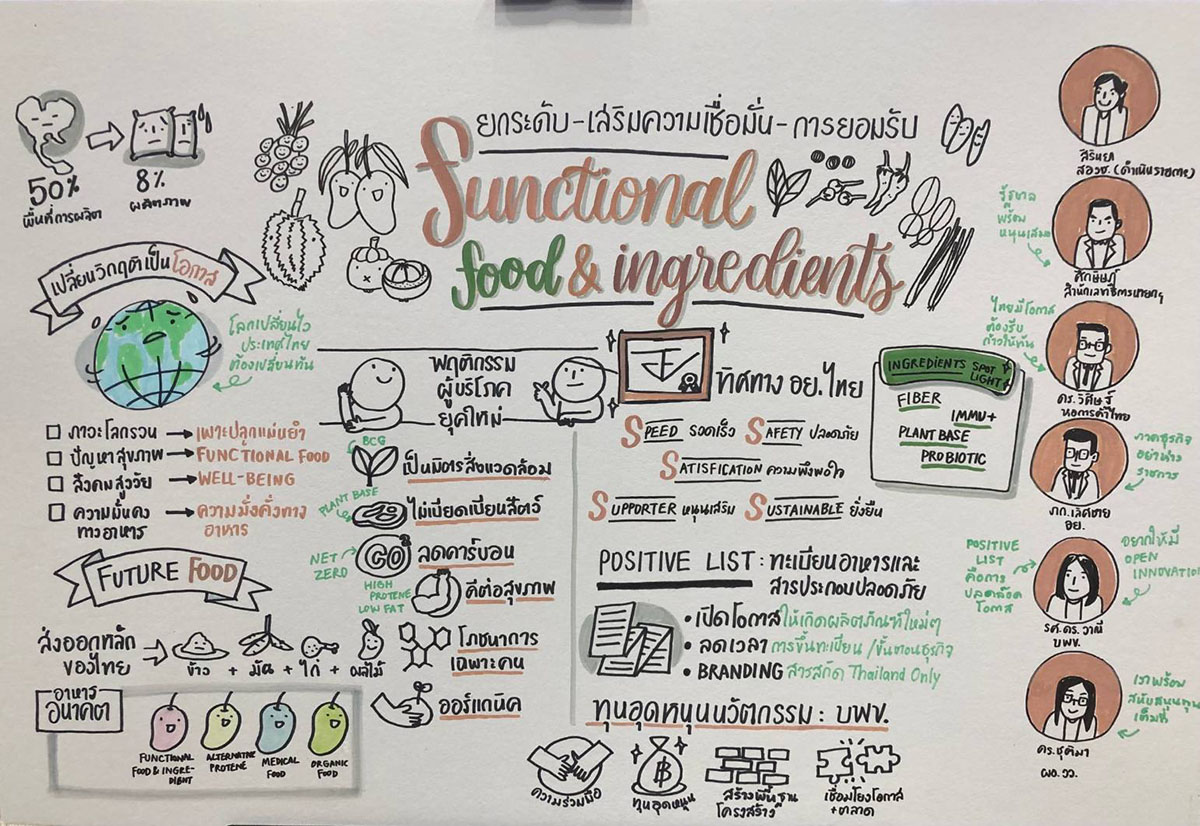 ยกระดับ-เสริมความเชื่อมั่น-การยอมรับ
Functional
food & ingredients
50%
พื้นที่การผลิต
8%
ผลิตภาพ
เปลี่ยนวิกฤติเป็นโอกาส
โลกเปลี่ยนไว
ประเทศไทย
ต้องเปลี่ยนทัน
ภาวะโลกรวน → เพาะปลูกแม่นยำ
ปัญหาสุขภาพ → FUNCTIONAL FOOD
สังคมสูงวัย → WELL-BEING
ความมั่นคง
ทางอาหาร → ความมั่งคั่งทาง
อาหาร
FUTURE FOOD
ส่งออกหลัก
ของไทย
ข้าว + มัน + ไก่ + ผลไม้
อาหาร
อนาคต
FUNCTIONAL
FOOD & INGRE-
DIENT
ALTERNATIVE
PROTENE
MEDICAL
FOOD
ORGANIC
FOOD
พฤติกรรม
ผู้บริโภค
ยุคใหม่
BCG
เป็นมิตรสิ่งแวดล้อม
PLANT BASE
ไม่เบียดเบียนสัตว์
NET
ZERO
CO²
ลดคาร์บอน
HIGH
PROTENE
LOW FAT
ดีต่อสุขภาพ
โภชนาการ
เฉพาะคน
ออร์แกนิค
ทิศทาง อย.ไทย
SPEED รวดเร็ว SAFETY ปลอดภัย
SATISFICATION ความพึงพอใจ
SUPPORTER หนุนเสริม SUSTAINABLE ยั่งยืน
INGREDIENTS SPOT
LIGHT
FIBER
IMMU+
PLANT BASE
PROBIOTIC
POSITIVE LIST : ทะเบียนอาหารและ
สารประกอบปลอดภัย
• เปิดโอกาสให้เกิดผลิตภัณฑ์ใหม่ๆ
• ลดเวลา การขึ้นทะเบียน/ขั้นตอนธุรกิจ
• BRANDING สารสกัด Thailand Only
ทุนอุดหนุนนวัตกรรม : บพข.
ความร่วมมือ
ทุนอุดหนุน
สร้างพื้นฐาน
โครงสร้าง
เชื่อมโยงโอกาส
+ตลาด
สิรินยา
สอวช. (ดำเนินรายการ)
รัฐบาล
พร้อม
หนุนเสริม
ศักษิษฏ์
สำนักเลขาธิการนายกฯ
ไทยมีโอกาส
ต้องรีบ
ก้าวให้ทัน
ดร.วิศิษฐ์
หอการค้าไทย
ภาคธุรกิจ
อย่าห่าง
ราชการ
ภก.เลิศชาย
อย.
POSITIVE
LIST
คือการ
ปลดล็อค
โอกาส
อยากให้มี
OPEN
INNOVATION
รศ.ดร.วาณี
บพข.
เราพร้อม
สนับสนุนทุน
เต็มที่
ดร.ชุติมา
ผอ.วว.